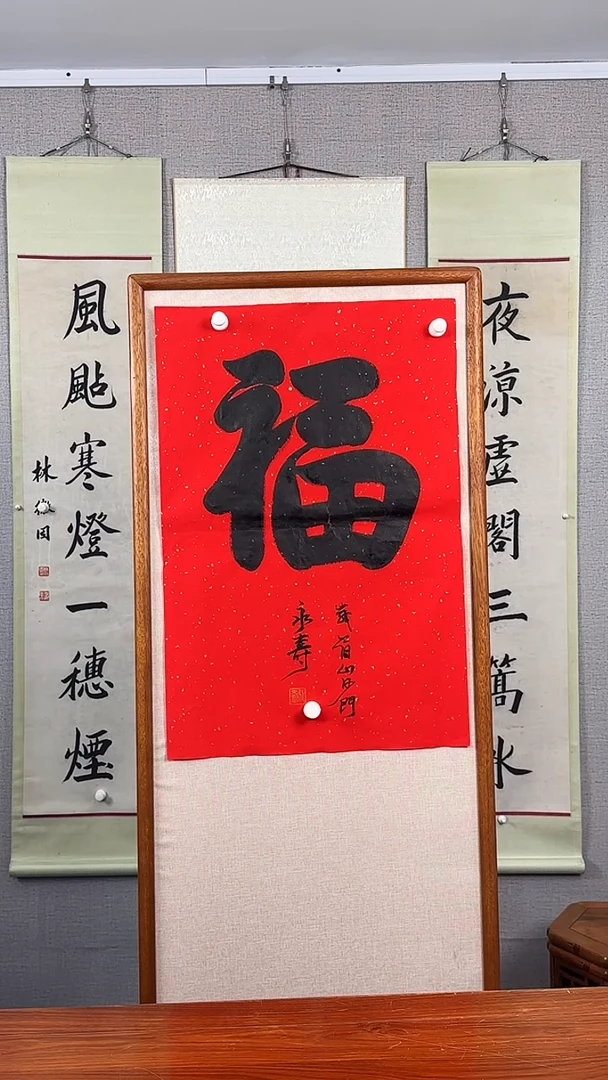 夜涼虛閣三篙水
福
峩眉山沙門
永壽
風颭寒燈一穗煙
林徽因